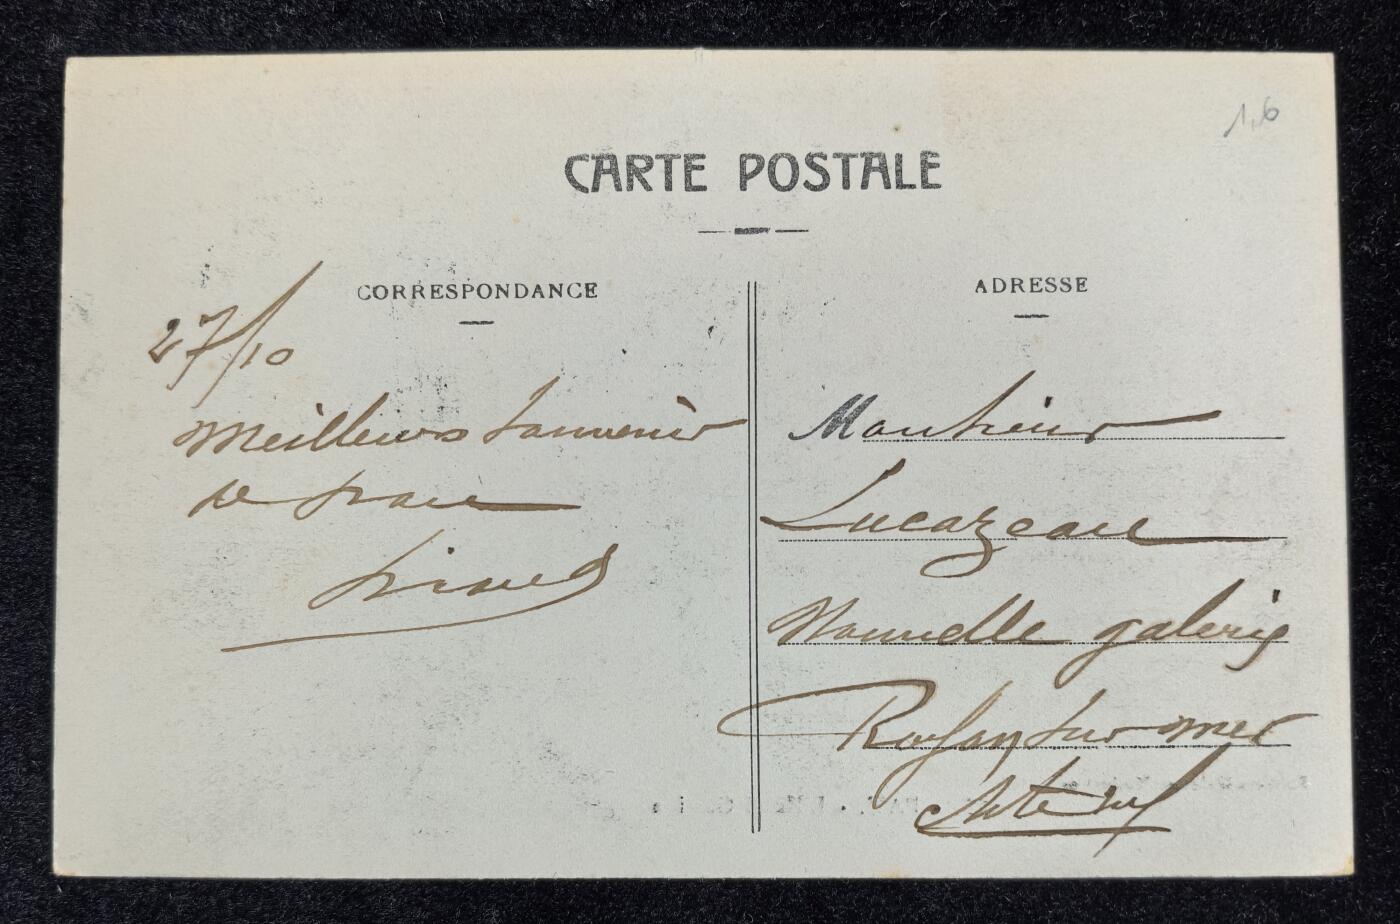 1,6
CARTE POSTALE
CORRESPONDANCE
ADRESSE
27/10
Meilleurs Souvenir
de
Monsieur
Lucazeau
Nouvelle galerie
sur mer